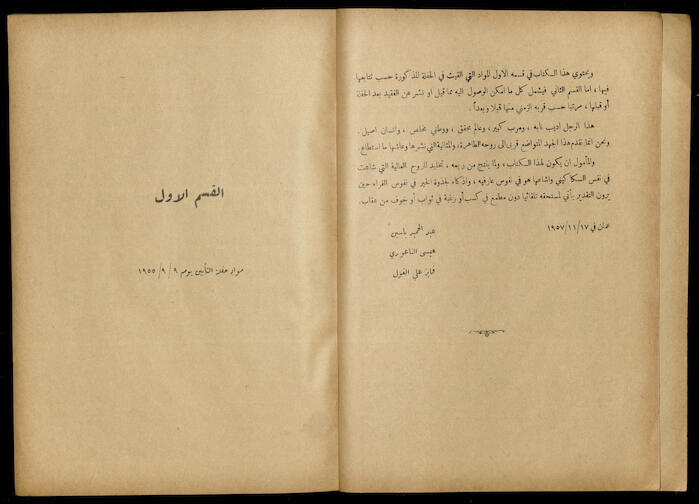 ويحتوي هذا الكتاب في قسمه الاول المواد التي القيت في الحفلة المذكورة حسب تتابعها
فيها ، اما القسم الثاني فيشمل كل ما امكن الوصول اليه مما قيل او نشر عن الفقيد بعد الحفلة
أو قبلها ، مرتبا حسب قربه الزمني منها قبلا وبعداً .
هذا الرجل اديب نابه ، ومرب كبير ، وعالم محقق ، ووطني مخلص ، وانسان اصيل .
ونحن انما نقدم هذا الجهد المتواضع قربى الى روحه الطاهرة ، والمثالية التي نشرها وعاشها ما استطاع .
والمأمول ان يكون لهذا الكتاب ، ولما ينتج من ريعه ، تخليد للروح العالية التي شاعت
في نفس السكاكيني واشاعها هو في نفوس عارفيه ، واذكاء لجذوة الخير في نفوس القراء حين
يرون التقدير يأتي لمستحقه تلقائيا دون مطمع في كسب أو رغبة في ثواب أو خوف من عقاب .
عمان في ١٧/١١/١٩٥٧
عبد الحميد ياسين
عيسى الناعوري
فايز علي الغول
القسم الاول
مواد حفلة التأبين يوم ٩/٩/١٩٥٥